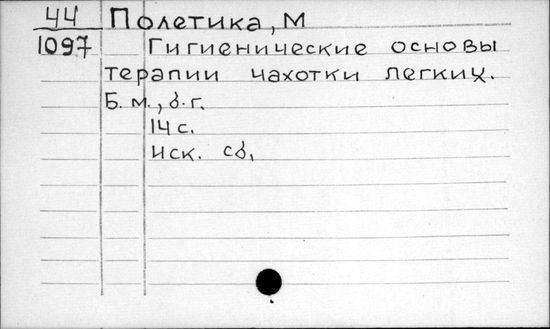 44 Полетика, М
1097 Гигиенические основы
терапии чахотки легких.
Б. м., б. г.
14 с.
Иск. сб,